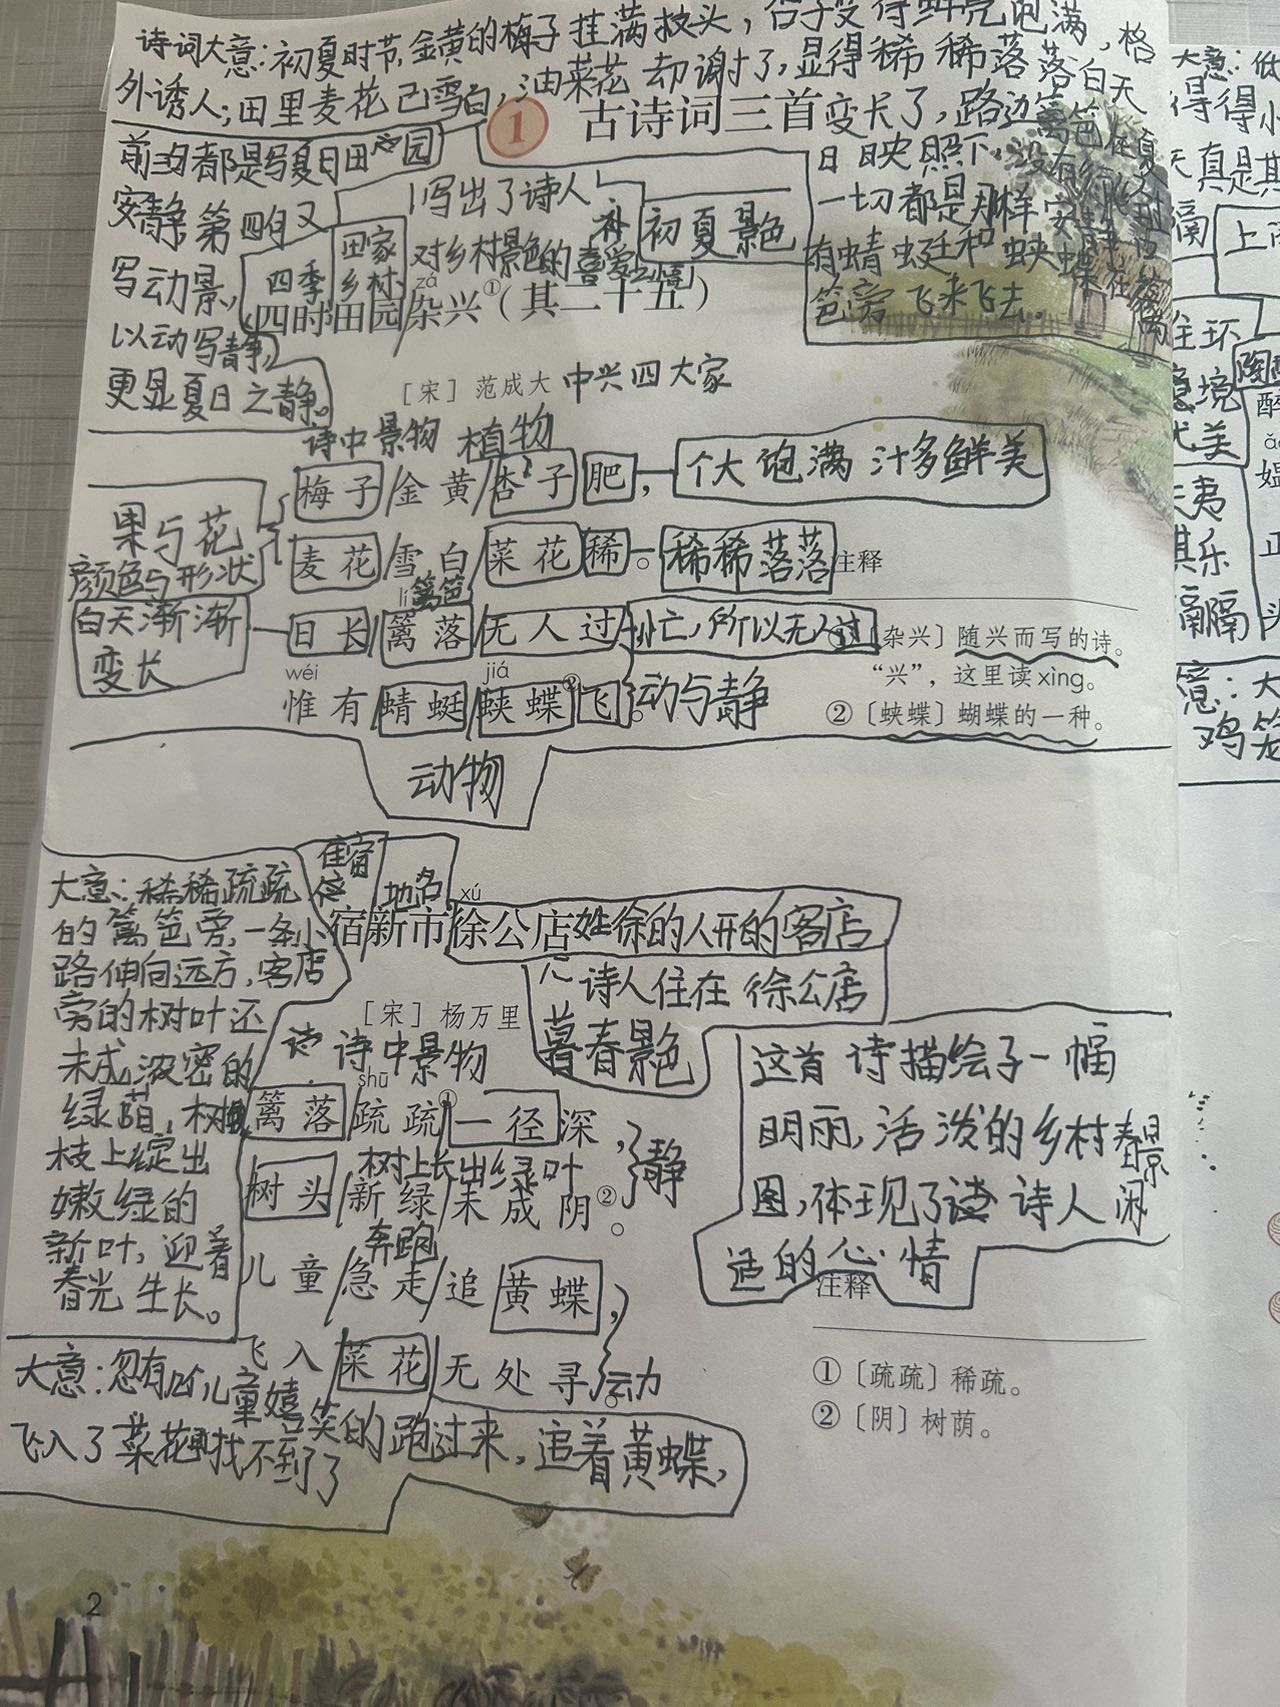 诗词大意：初夏时节，金黄的梅子挂满枝头，杏子变得鲜亮饱满，格
外诱人；田里麦花已雪白，油菜花却谢了，显得稀稀落落白天
变长了，路边篱笆在夏
日映照下没有
一切都是那样安静
有蜻蜓和蛱蝶在篱
笆旁飞来飞去。
1
古诗词三首
前3句都是写夏日田园之
安静第四句又
写动景，
以动写静，
更显夏日之静。
写出了诗人
对乡村景色的喜爱之情
补
初夏景色
四季
田家
乡村
zá
四时田园杂兴①（其二十五）
［宋］范成大
中兴四大家
诗中景物 植物
梅子/金黄/杏子肥，
个大饱满 汁多鲜美
果与花
颜色与形状
麦花/雪白/菜花稀。
稀稀落落
lí
篱笆
白天渐渐
变长
日长/篱落/无人过，
忙，所以无人过
wéi
jiá
惟有/蜻蜓/蛱蝶②飞。
动与静
动物
注释
①〔杂兴〕随兴而写的诗。
“兴”，这里读xìng。
②〔蛱蝶〕蝴蝶的一种。
大意：稀稀疏疏
的篱笆旁，一条小
路伸向远方，客店
旁的树叶还
未成浓密的
绿荫，树
枝上绽出
嫩绿的
新叶，迎着
春光生长。
住宿
地名
xú
宿新市徐公店
姓徐的人开的客店
诗人住在徐公店
暮春景色
［宋］杨万里
诗中景物
shū
篱落/疏疏①/一径深，
静
树上长出绿叶
树头/新绿/未成阴②。
奔跑
儿童/急走/追黄蝶，
飞入/菜花/无处寻。
动
这首诗描绘了一幅
明丽，活泼的乡村春景
图，体现了诗人闲
适的心情
注释
①〔疏疏〕稀疏。
②〔阴〕树荫。
大意：忽有儿童嬉笑的跑过来，追着黄蝶，
飞入了菜花找不到了
2